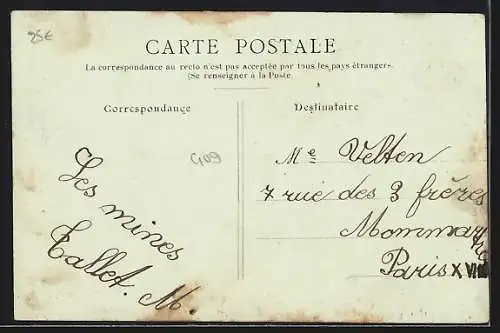 25€
CARTE POSTALE
La correspondance au recto n'est pas acceptée par tous les pays étrangers.
(Se renseigner à la Poste.
Correspondance
Destinataire
G09
Les mines
Tallet. M.
Me Velten
7 rue des 3 frères
Mommartre
Paris XVIII